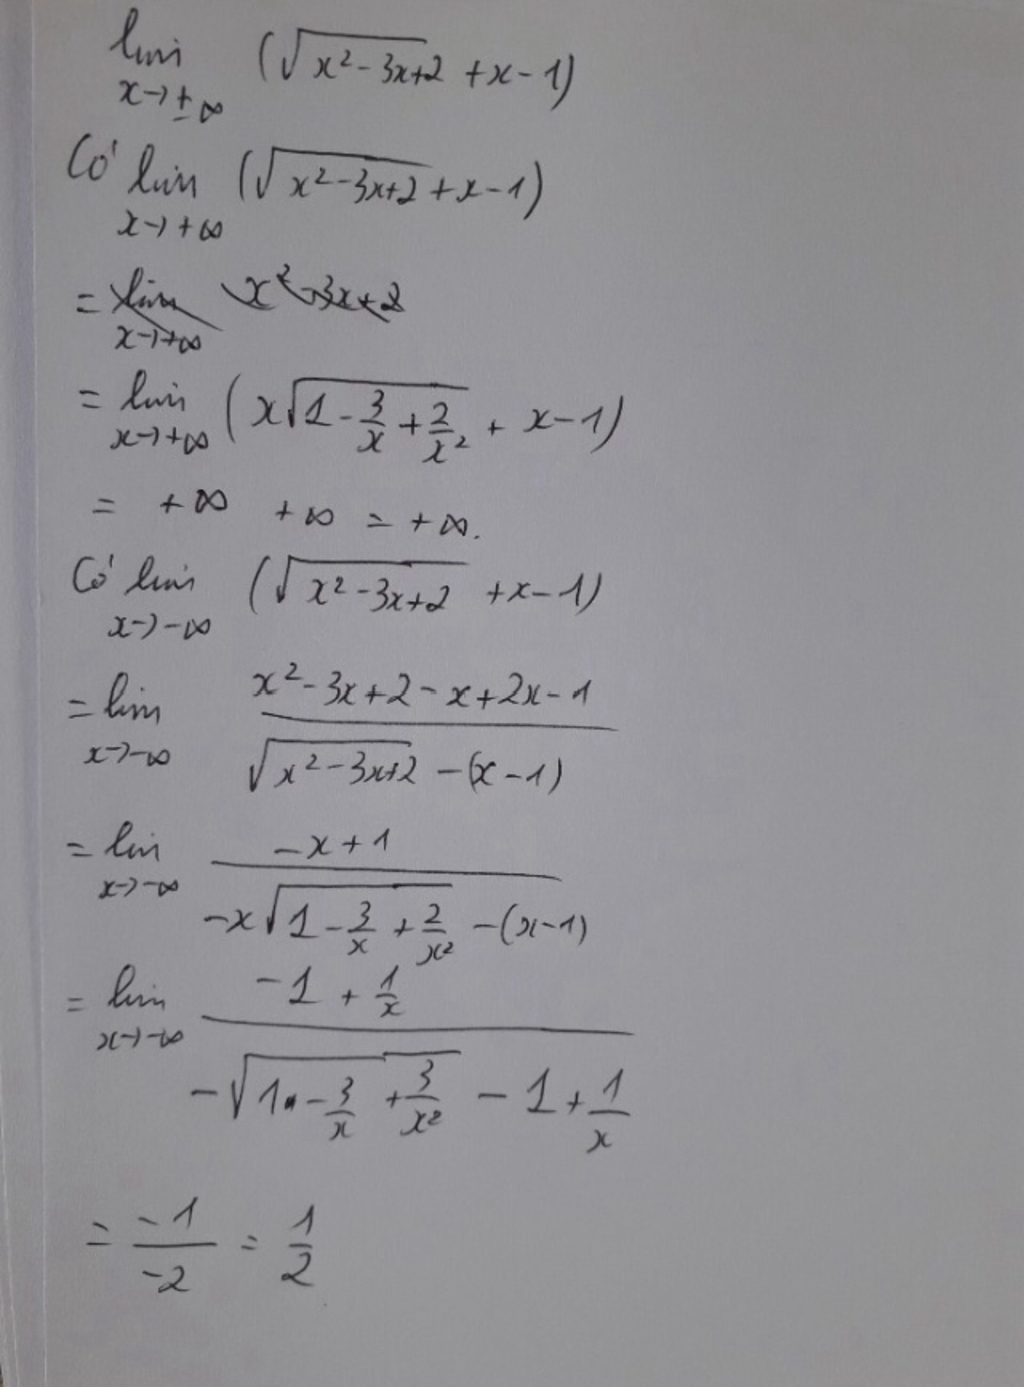 lim (√(x² - 3x + 2) + x - 1)
x→±∞
Có lim (√(x² - 3x + 2) + x - 1)
x→+∞
= lim x² - 3x + 2
x→+∞
= lim (x√(1 - 3/x + 2/x²) + x - 1)
x→+∞
= +∞ +∞ = +∞.
Có lim (√(x² - 3x + 2) + x - 1)
x→-∞
= lim (x² - 3x + 2 - x + 2x - 1)/(√(x² - 3x + 2) - (x - 1))
x→-∞
= lim (-x + 1)/(-x√(1 - 3/x + 2/x²) - (x - 1))
x→-∞
= lim (-1 + 1/x)/(-√(1 - 3/x + 3/x²) - 1 + 1/x)
x→-∞
= -1/-2 = 1/2